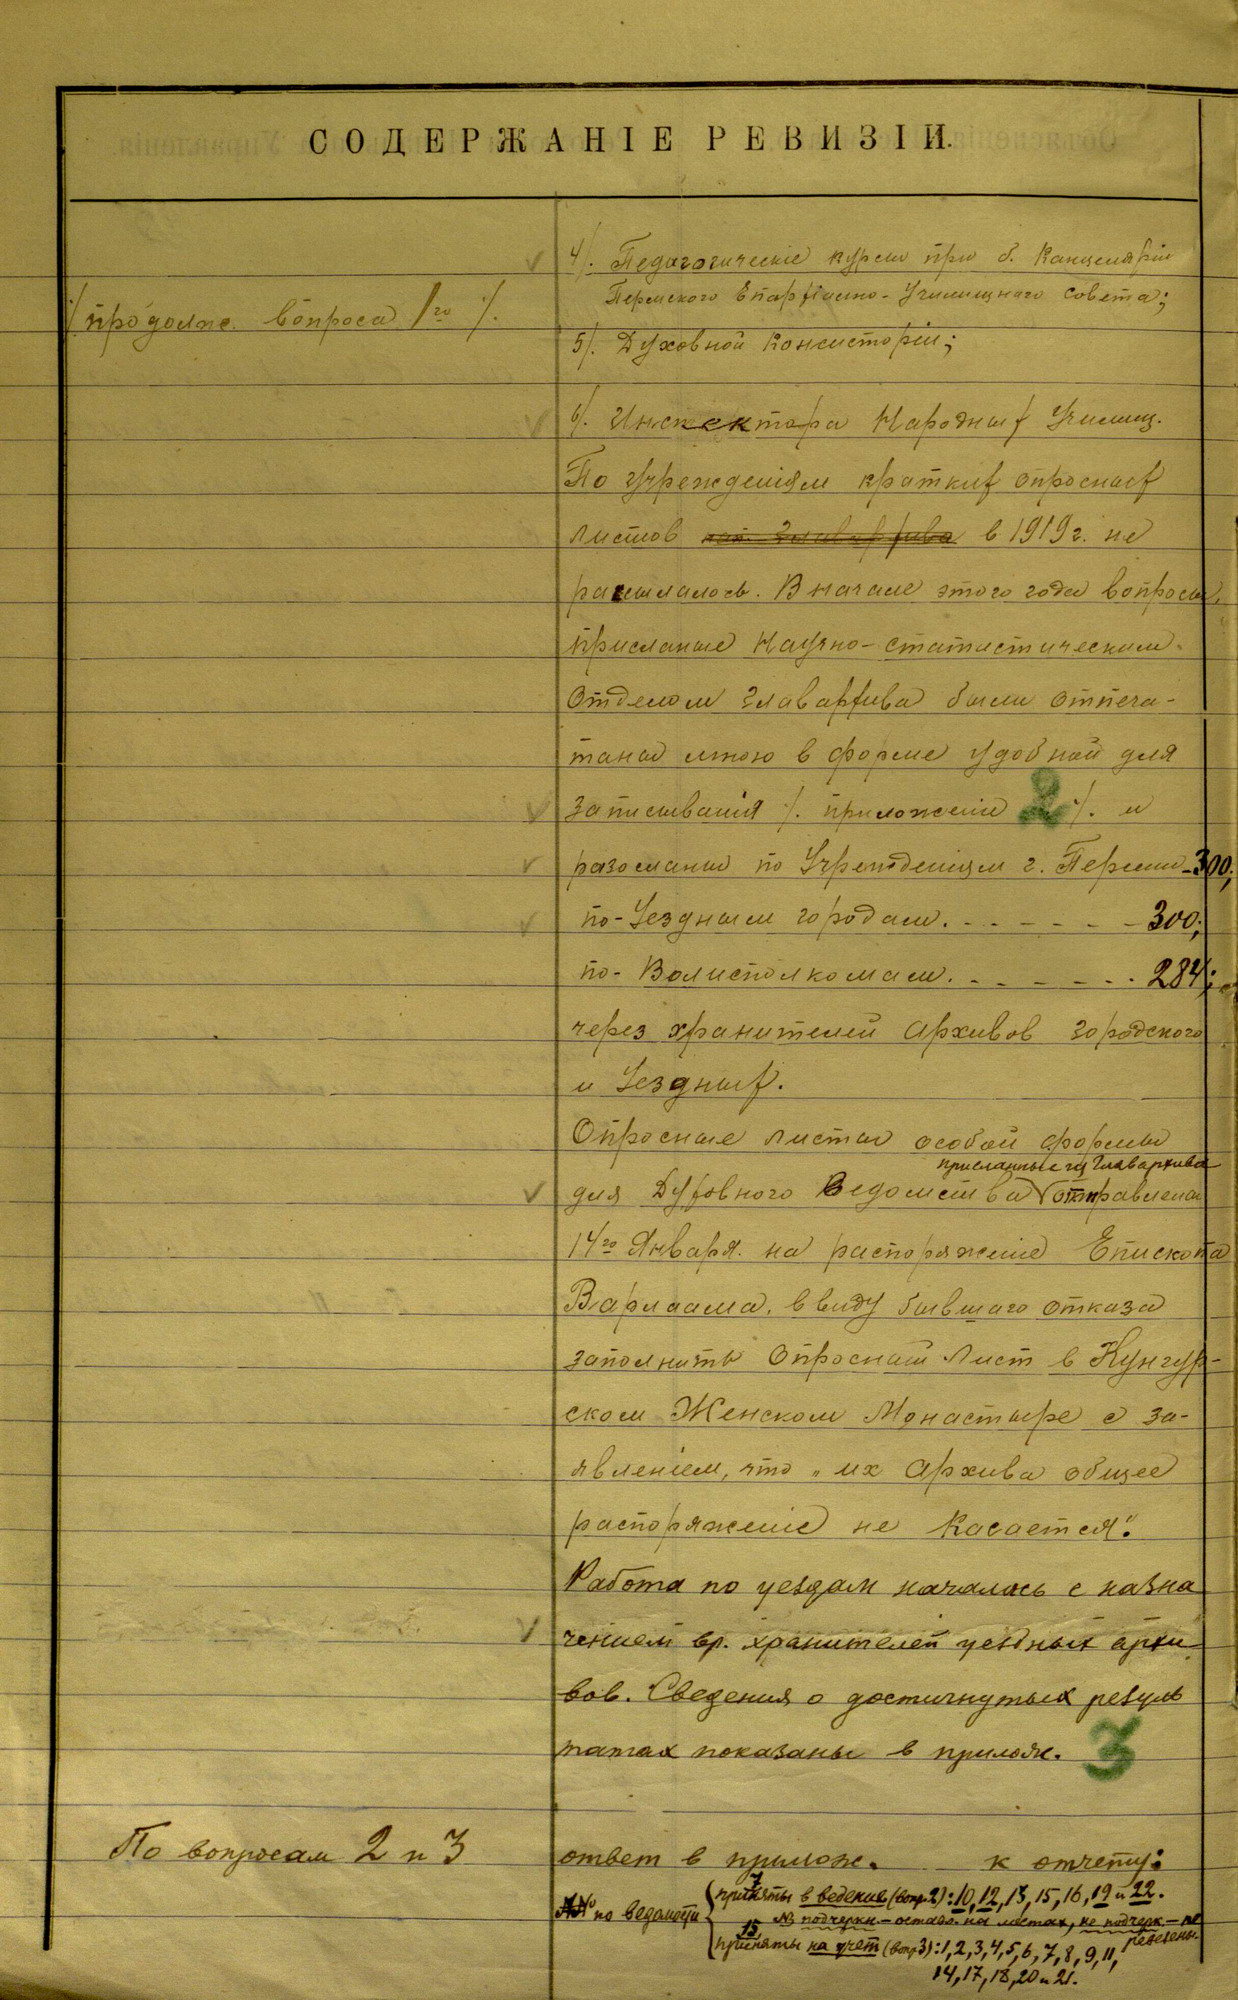 СОДЕРЖАНІЕ РЕВИЗІИ.
4/. Педагогическіе курсы при б. Канцеляріи
Пермского Епархіально-Училищного Совета;
/. продолж. вопроса 1го /.
5/. Духовной Консисторіи;
6/. Инспектора Народных Училищ.
По Учрежденіям кратких опросных
листов в 1919 г. не
рассылалось. В начале этого года вопросы,
присланые Научно-статистическим
отделом Главархива были отпеча-
таны мною в форме удобной для
записыванія /. приложеніе 2 /. и
разосланы по Учрежденіям г. Перми - 300;
по-Уездным городам. - - - - - - 300;
по-Волисполкомам. - - - - - - 284;
через хранителей Архивов городского
и Уездных.
Опросные листы особой формы
присланные из Главархива
для Духовного Ведомства отправлены
14го Января. на распоряженіе Епископа
Варлаама. ввиду бывшаго отказа
заполнить Опросный Лист в Кунгур-
ском Женском Монастыре с за-
явленіем, что „их Архива общее
распоряженіе не касается".
Работа по уездам началась с назна
чением вр. хранителей уездных архи-
вов. Сведения о достигнутых резуль
татах показаны в прилож. 3
По вопросам 2 и 3 ответ в прилож. к отчету:
№№ по ведомости
7
приняты в ведение (вопр 2): 10, 12, 13, 15, 16, 19 и 22.
№ подчеркн. - оставл. на местах, не подчерк - пе
ревезены.
15
приняты на учет (вопр 3): 1, 2, 3, 4, 5, 6, 7, 8, 9, 11,
14, 17, 18, 20 и 21.